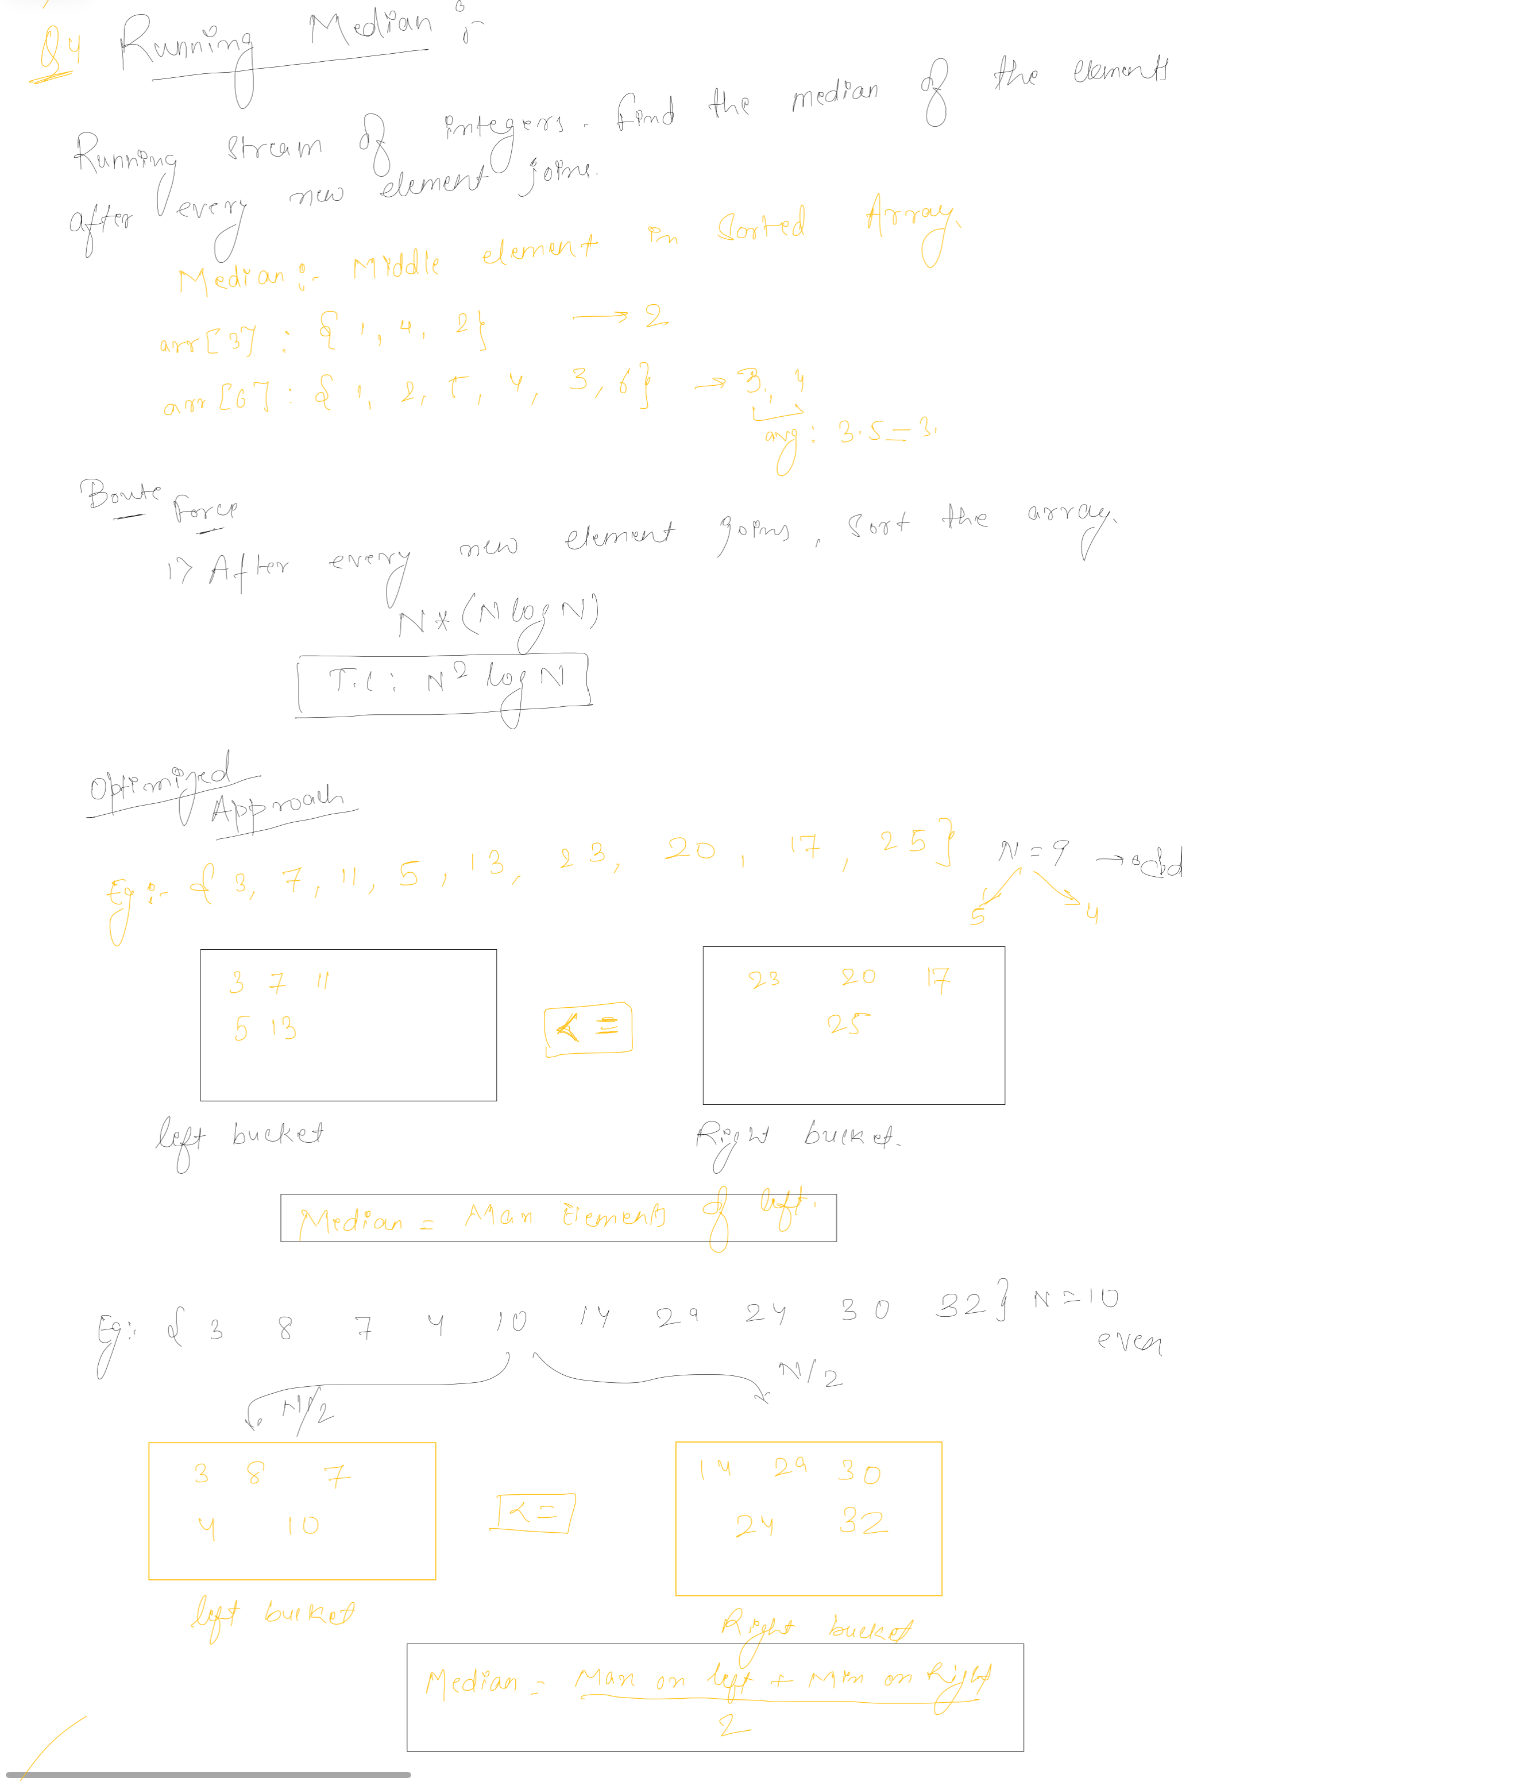 Q4 Running Median :-
Running stream of integers. find the median of the elements
after every new element joins.
Median :- Middle element in Sorted Array.
arr[3] : { 1, 4, 2} → 2
arr [6] : { 1, 2, 5, 4, 3, 6} → 3, 4
avg : 3.5 = 3.
Broute
Force
1) After every new element joins, Sort the array.
N * (N log N)
T.C : N² log N
Optimized
Approach
Eg :- { 3, 7, 11, 5, 13, 23, 20, 17, 25} N = 9 → odd
5 4
3 7 11 23 20 17
5 13 < = 25
left bucket Right bucket.
Median = Max Elements of left.
Eg :- { 3 8 7 4 10 14 29 24 30 32} N = 10
even
N/2 N/2
3 8 7 14 29 30
4 10 < = 24 32
left bucket Right bucket
Median = Max on left + Min on Right
2